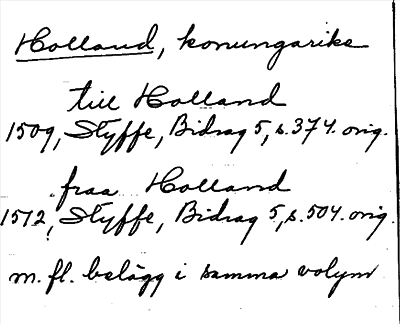 Holland, konungarike
till Holland
1509, Styffe, Bidrag 5, s. 374. orig.
fraa Holland
1512, Styffe, Bidrag 5, s. 504. orig.
m. fl. belägg i samma volym